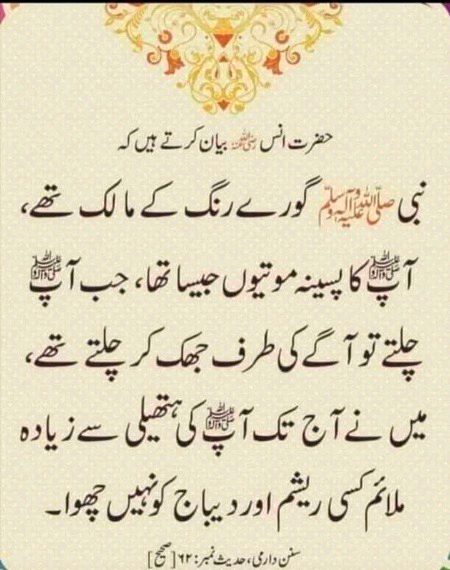 حضرت انس رضی اللہ عنہ بیان کرتے ہیں کہ
نبی صلی اللہ علیہ وآلہ وسلم گورے رنگ کے مالک تھے،
آپ ﷺ کا پسینہ موتیوں جیسا تھا، جب آپ ﷺ
چلتے تو آگے کی طرف جھک کر چلتے تھے،
میں نے آج تک آپ ﷺ کی ہتھیلی سے زیادہ
ملائم کسی ریشم اور دیباج کو نہیں چھوا۔
سنن دارمی، حدیث نمبر: ۶۲ [صحیح]